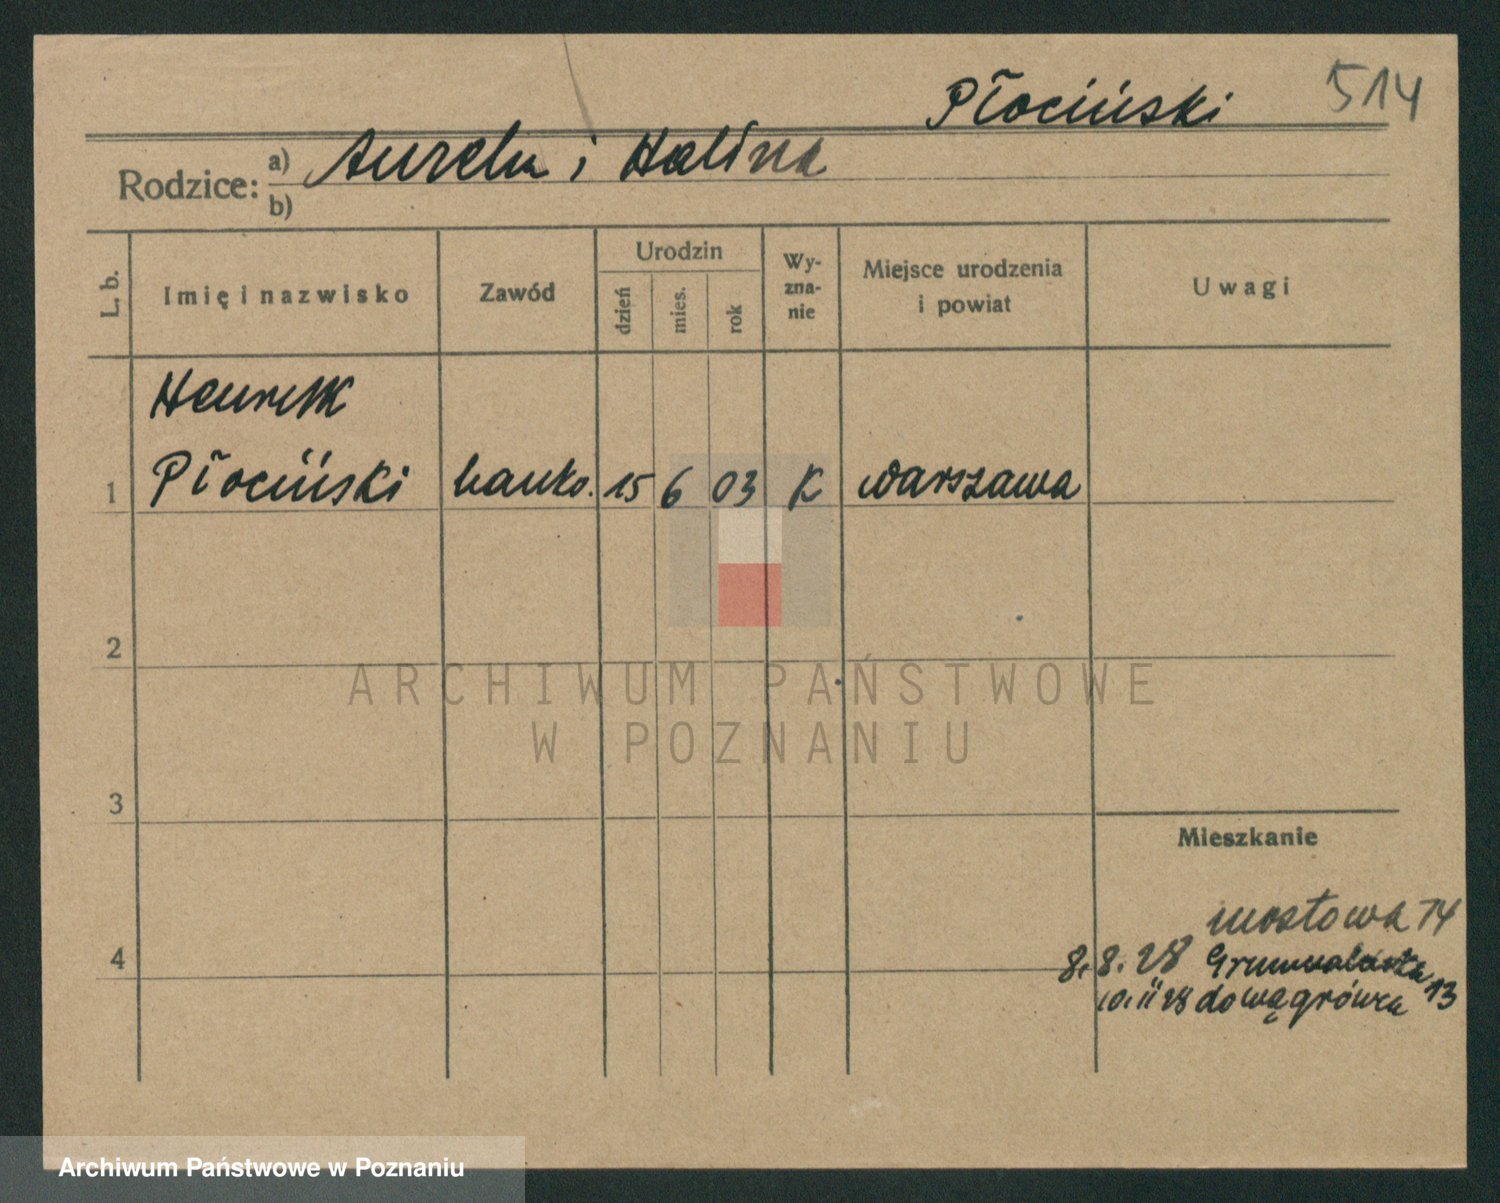 Płociński 514
Rodzice: a) Aureli i Halina
b)
L. b.
Imię i nazwisko
Zawód
Urodzin
dzień
mies.
rok
Wy-
zna-
nie
Miejsce urodzenia
i powiat
Uwagi
Henryk
1 Płociński banko. 15 6 03 K Warszawa
2
3
4
Mieszkanie
mostowa 14
8.8.28 Grunwaldzka
10.11 28 do wągrówca 13
ARCHIWUM PAŃSTWOWE
W POZNANIU
Archiwum Państwowe w Poznaniu